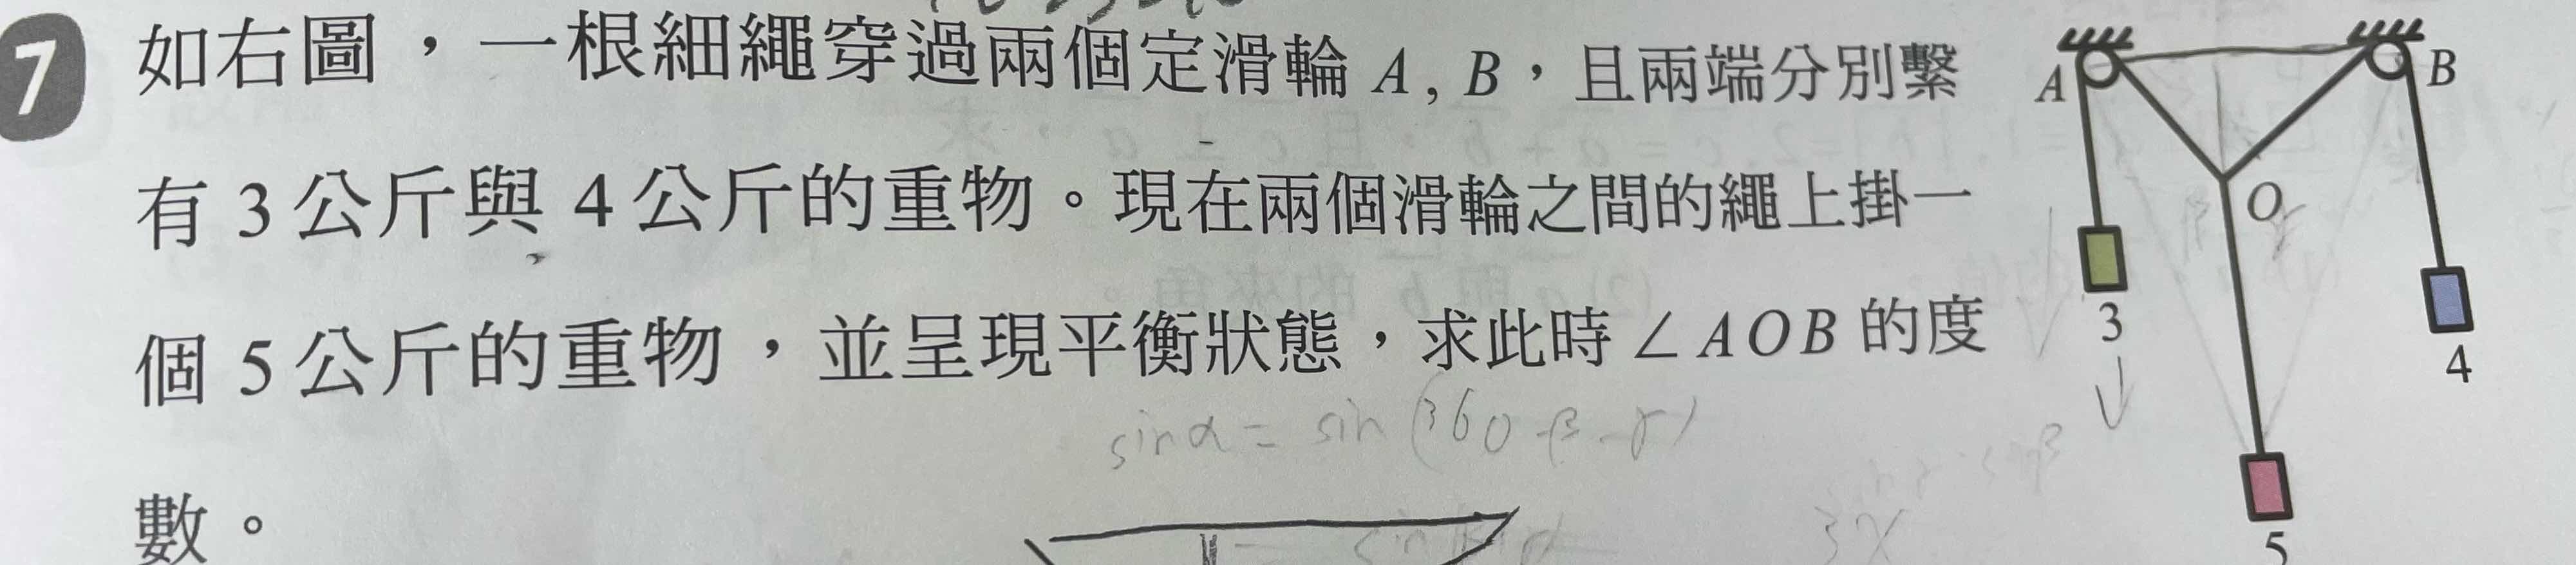 7 如右圖，一根細繩穿過兩個定滑輪 A, B，且兩端分別繫
有 3 公斤與 4 公斤的重物。現在兩個滑輪之間的繩上掛一
個 5 公斤的重物，並呈現平衡狀態，求此時 ∠AOB 的度
數。
A
B
O
3
4
5
sin α = sin (360 - β - γ)